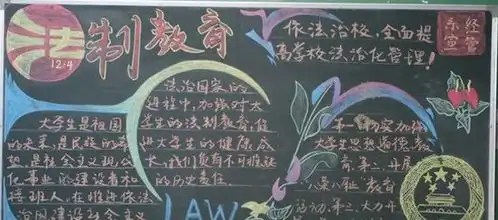 法制教育
12.4
依法治校,全面提
高学校法治化管理!
经管
系宣
大学生是祖国
的未来,是民族的希
望,是社会主义现代
化事业的建设者和
接班人,在推进依法
治国建设社会主义
法治国家的
进程中,加强对大
学生的法制教育,促
进大学生的健康成
长,我们负有不可推诿
的历史责任.
LAW
第一、切实加强
大学生思想道德教
育.第二、开展
八荣八耻教育
活动.第三、大力开